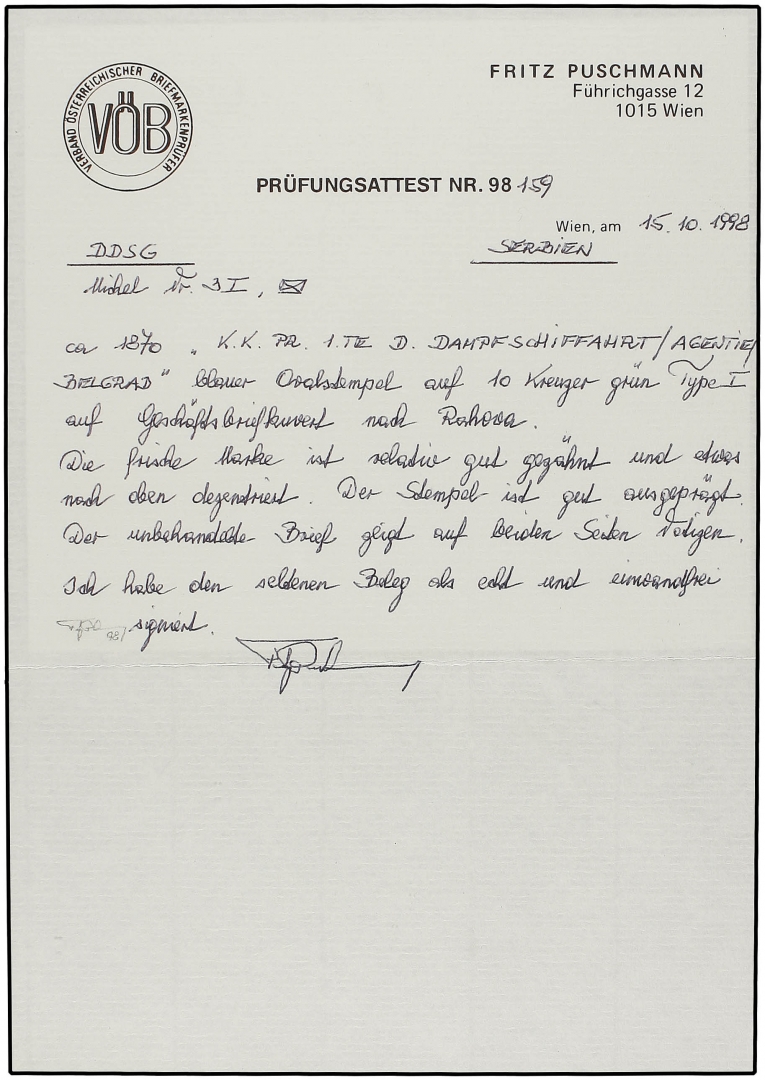 VERBAND ÖSTERREICHISCHER BRIEFMARKENPRÜFER
VÖB
FRITZ PUSCHMANN
Führichgasse 12
1015 Wien
PRÜFUNGSATTEST NR. 98 159
Wien, am 15. 10. 1998
DDSG SERBIEN
Michel Nr. 3 I, ✉
ca 1870 „K.K. PR. 1.TE D. DAMPFSCHIFFAHRT/AGENTIE/
BELGRAD" blauer Ovalstempel auf 10 Kreuzer grün Type I
auf Geschäftsbriefkuvert nach Rahova.
Die frische Marke ist relativ gut gezähnt und etwas
nach oben dezentriert. Der Stempel ist gut ausgeprägt.
Der unbehandelte Brief zeigt auf beiden Seiten Notizen.
Ich habe den seltenen Beleg als echt und einwandfrei
98/ signiert.